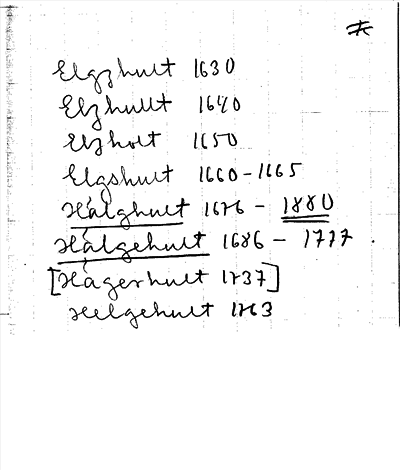 Elgzhult 1630
Elzhullt 1640
Elzholt 1650
Elgshult 1660-1665
Hälghult 1676 - 1880
Hälgehult 1686 - 1777.
[Hägerhult 1737]
Helgehult 1763